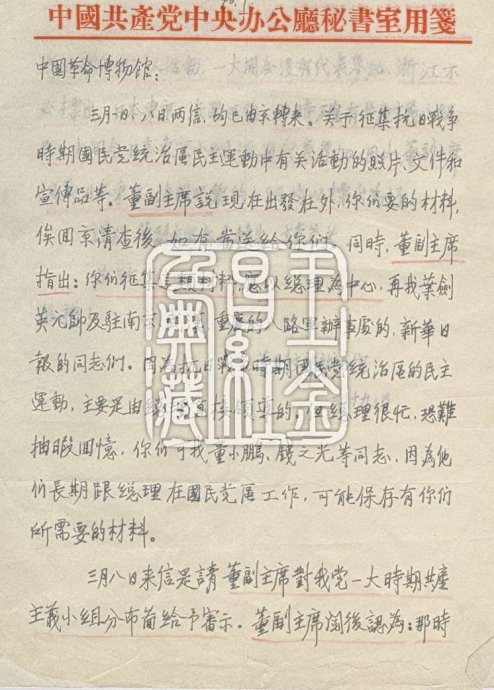 中國共產党中央办公廳秘書室用箋
中國革命博物館：
三月一日、八日两信，均已由京轉来。关于征集抗日战争
時期國民党統治區民主運動中有关活動的照片、文件和
宣傳品等。董副主席說，現在出發在外，你们要的材料，
俟回京清查後，如有當送给你们。同時，董副主席
指出：你们征集這類材料，應以總理為中心，再找葉劍
英元帥及駐南京、重慶的八路軍辦事處的，新華日
報的同志们。因為抗日戰爭時期國民党統治區的民主
運動，主要是由總理直接領導的，但總理很忙，恐難
抽暇回憶，你们可找童小鵬、錢之光等同志，因為他
们長期跟總理在國民党區工作，可能保存有你们
所需要的材料。
三月八日来信是請董副主席對我党一大時期共產
主義小組分布簡给予審示。董副主席閱後認為：那時
王金
昌紅
色典藏